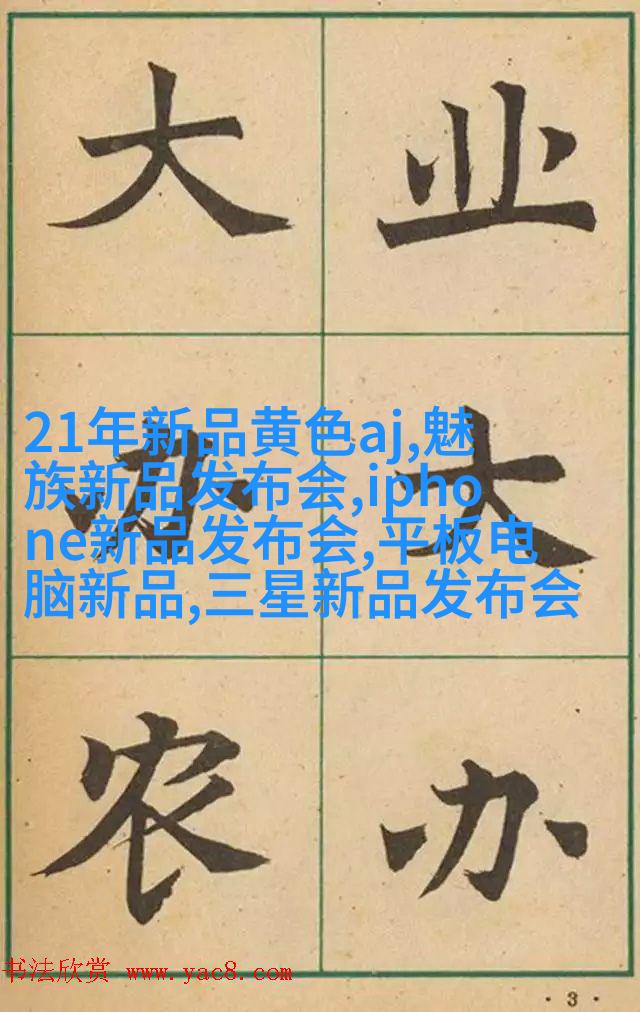 大办农
业大办
21年新品黄色aj,魅
族新品发布会,ipho
ne新品发布会,平板电
脑新品,三星新品发布会
书法欣赏 www.yac8.com
·3·